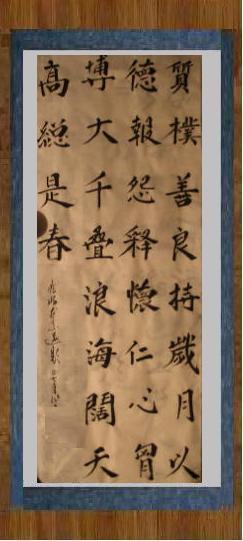 質樸善良持歲月以
德報怨釋懷仁心胷
博大千疊浪海闊天
髙總是春